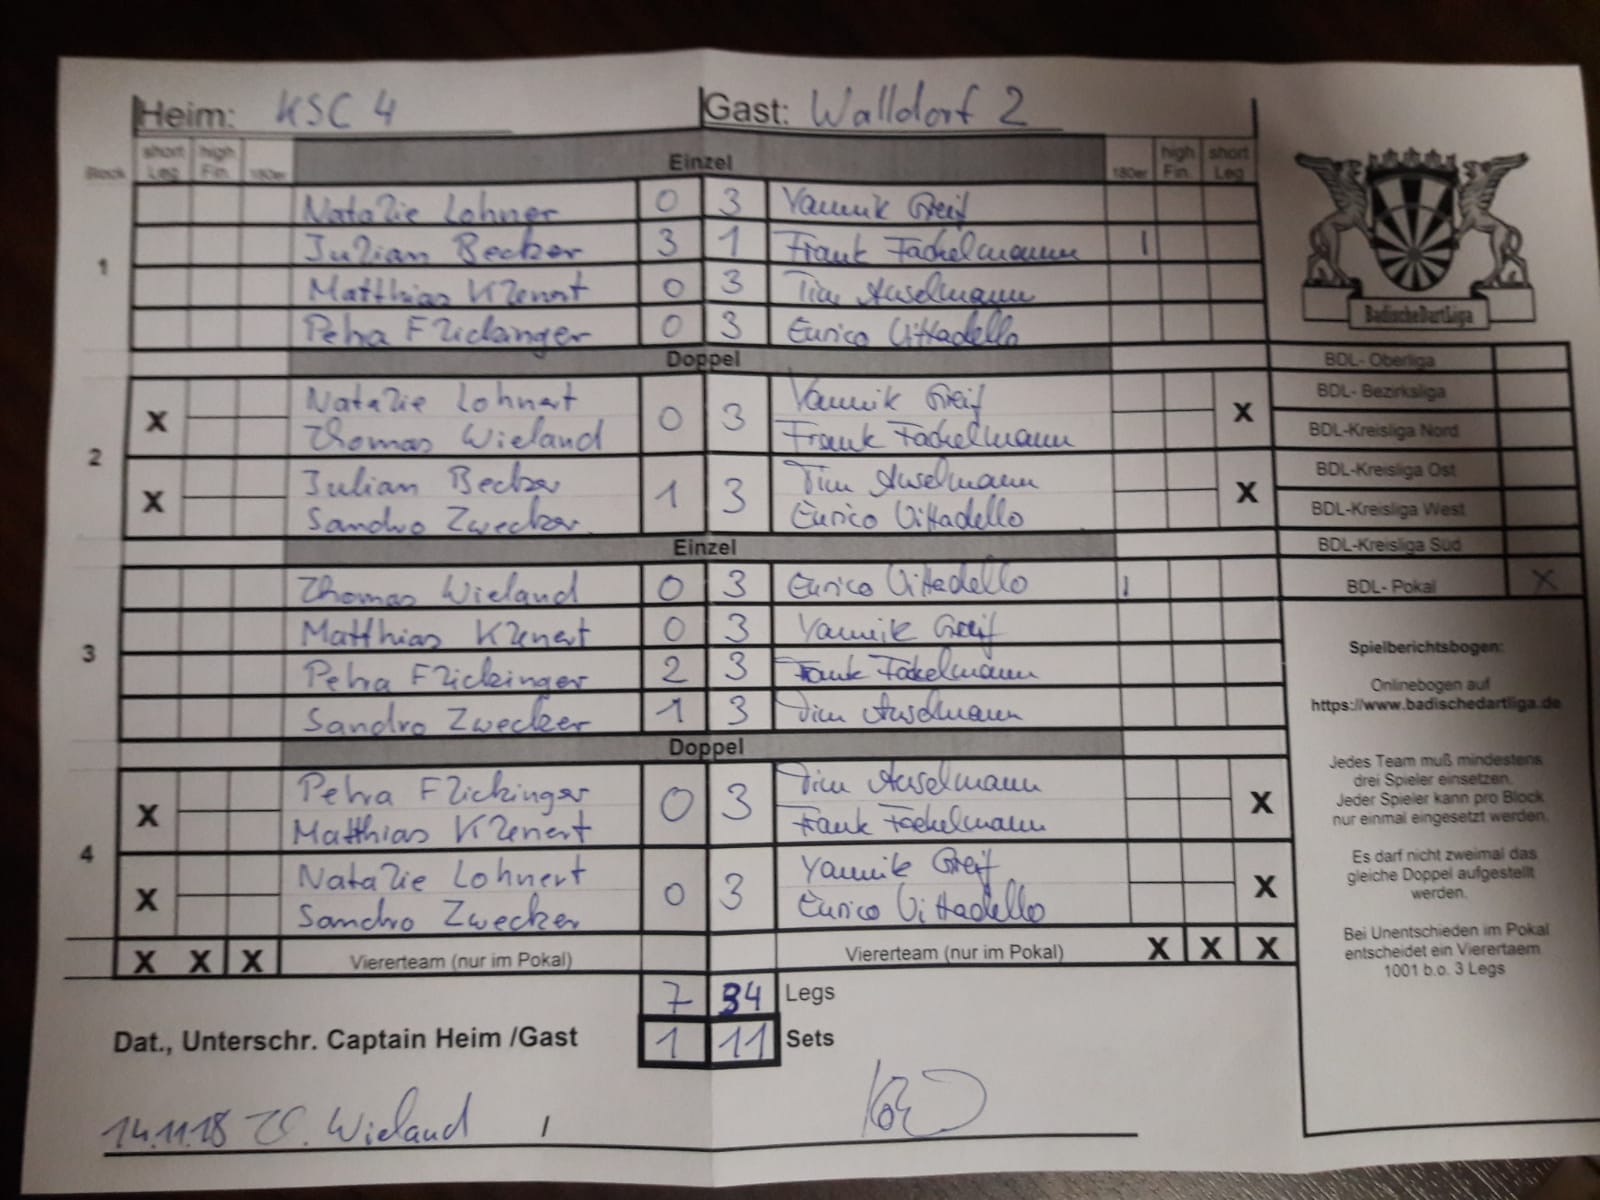 Heim: KSC 4 Gast: Walldorf 2
Block short Leg high Fin. 180er Einzel 180er high Fin. short Leg
Natalie Lohner 0 3 Yannik Greif
1 Julian Becker 3 1 Frank Fackelmann I
Matthias Klenert 0 3 Tim Anselmann
Petra Flickinger 0 3 Eurico Vittadello
Doppel
X Natalie Lohnert 0 3 Yannik Greif X
Thomas Wieland Frank Fackelmann
2
X Julian Becker 1 3 Tim Anselmann X
Sandro Zwecker Eurico Vittadello
Einzel
Thomas Wieland 0 3 Eurico Vittadello I
Matthias Klenert 0 3 Yannik Greif
3
Petra Flickinger 2 3 Frank Fackelmann
Sandro Zwecker 1 3 Tim Anselmann
Doppel
X Petra Flickinger 0 3 Tim Anselmann X
Matthias Klenert Frank Fackelmann
4
X Natalie Lohnert 0 3 Yannik Greif X
Sandro Zwecker Eurico Vittadello
X X X Viererteam (nur im Pokal) Viererteam (nur im Pokal) X X X
7 34 Legs
Dat., Unterschr. Captain Heim /Gast 1 11 Sets
14.11.18 Wieland /
BadischeDartLiga
BDL- Oberliga
BDL- Bezirksliga
BDL-Kreisliga Nord
BDL-Kreisliga Ost
BDL-Kreisliga West
BDL-Kreisliga Süd
BDL- Pokal X
Spielberichtsbogen:
Onlinebogen auf
https://www.badischedartliga.de
Jedes Team muß mindestens
drei Spieler einsetzen.
Jeder Spieler kann pro Block
nur einmal eingesetzt werden.
Es darf nicht zweimal das
gleiche Doppel aufgestellt
werden.
Bei Unentschieden im Pokal
entscheidet ein Vierertaem
1001 b.o. 3 Legs